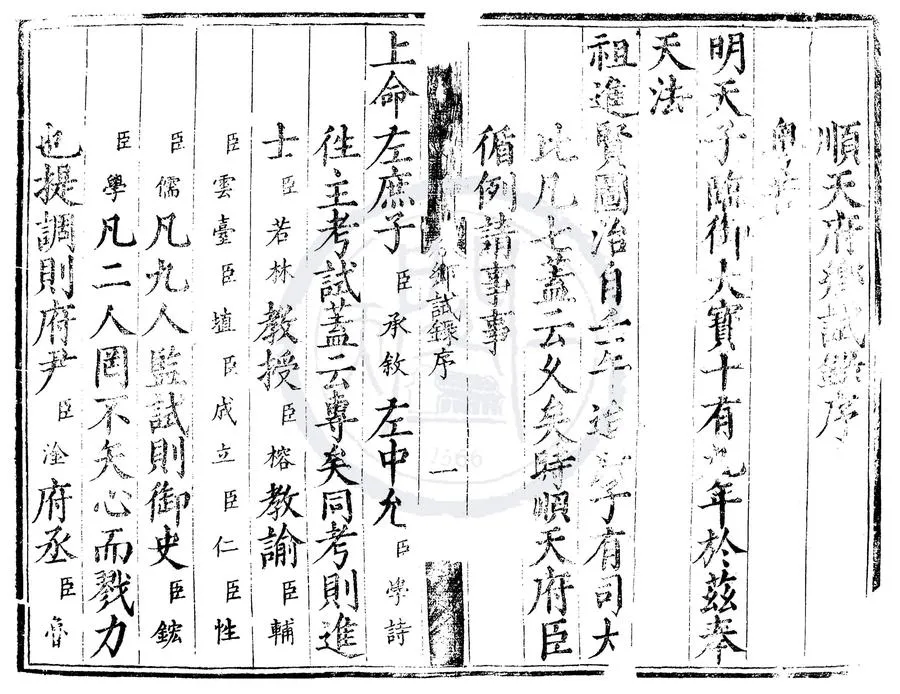 順天府鄉試錄序
明天子臨御大寶十有九年於茲奉
天法
祖進賢圖治自壬午迄子有司大
比凡七蓋云久矣時順天府臣
循例請事事
鄉試錄序 一
上命左庶子臣承敘左中允臣學詩
往主考試蓋云專矣同考則進
士臣若林教授臣榕教諭臣輔
臣雲臺臣埴臣成立臣仁臣性
臣儒凡九人監試則御史臣鋐
臣學凡二人罔不矢心而戮力
也提調則府尹臣淦府丞臣魯